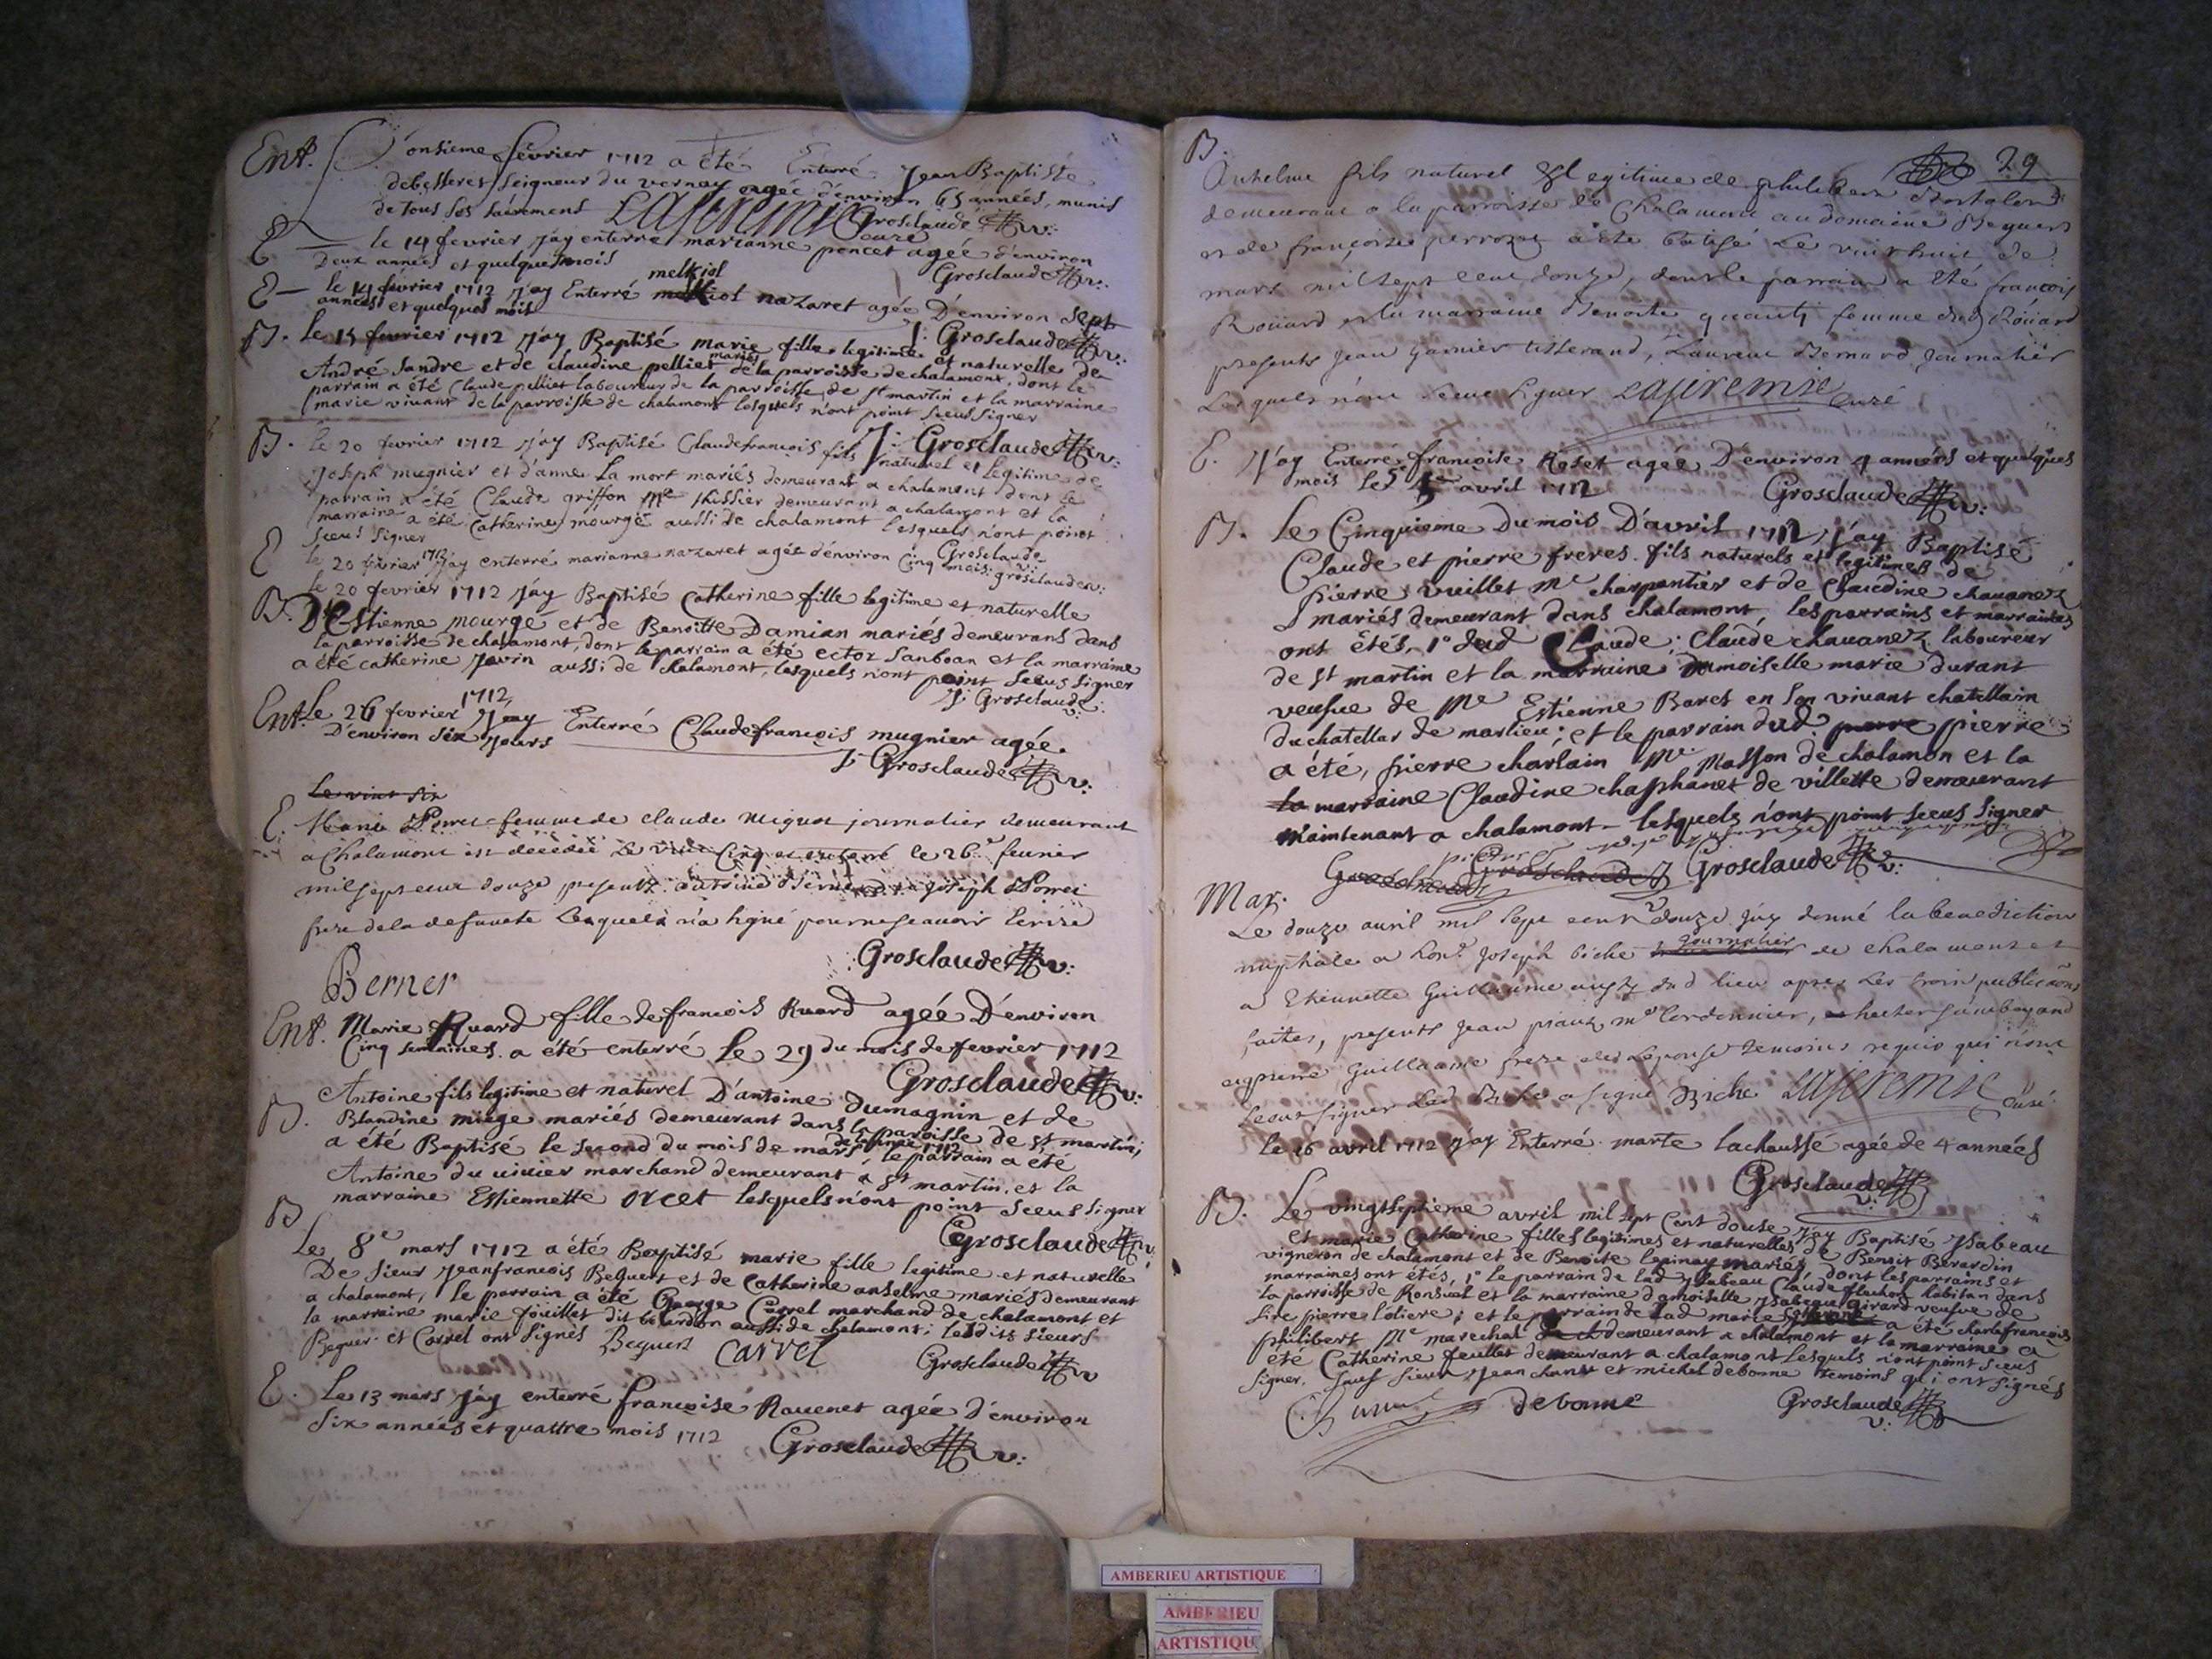 Ent. L'onsieme fevrier 1712 a été Enterré Jean Baptiste
debesseres seigneur du vernay agée d'environ 65 années, munis
de tous ses sacremens
Grosclaude v:
curé
E — le 14 fevrier j'ay enterré marianne poncet agée d'environ
Deux années et quelques mois Grosclaude v:
melkiol
E — le 14 février 1712 j'ay Enterré melkiol nazaret agée D'environ sept
années et quelques mois
J: Grosclaude v:
B. le 15 fevrier 1712 j'ay Baptisé marie fille legitime et naturelle de
André Sandre et de claudine pelliet mariés de la parroisse de chalamont, dont le
parrain a été Claude pelliet laboureur de la parroisse de st martin et la marraine
marie vivant de la parroisse de chalamont lesquels n'ont point sceus signer
J: Grosclaude v:
B. le 20 fevrier 1712 j'ay Baptisé Claudefrancois fils naturel et legitime de
Joseph mugnier et d'anne La mort mariés demeurant a chalamont dont le
parrain a été Claude griffon me huissier demeurant a chalamont et la
marraine a été Catherine mourgé aussi de chalamont lesquels n'ont point
sceus signer Grosclaude v:
E le 20 fevrier 1712 j'ay enterré marianne nazaret agée d'environ Cinq mois: grosclaude v:
B. le 20 fevrier 1712 j'ay Baptisé Catherine fille legitime et naturelle
D'Estienne mourgé et de Benoitte Damian mariés demeurans dans
la parroisse de chalamont, dont le parrain a été ector sanboan et la marraine
a été catherine javin aussi de chalamont, lesquels n'ont point sceus signer
J: Grosclaude v:
Ent. Le 26 fevrier 1712, j'ay Enterré Claudefrancois mugnier agée
D'environ six jours
J: Grosclaude v:
Le vint six
E. Marie femme de claude mignot journalier demeurant
a Chalamont est decedée Le le 26e feurier
mil sept cent douze presents antoine Joseph
frere de la defuncte Lequel n'a signé pour ne scauoir Ecrire
Grosclaude v:
Berner
Ent. Marie Ruard fille de francois Ruard agée D'environ
Cinq semaines a été enterré le 29 du mois de fevrier 1712
Grosclaude v:
B. Antoine fils legitime et naturel D'antoine dumagnin et de
Blandine miege mariés demeurant dans la paroisse de st martin;
a été Baptisé le second du mois de mars de l'année 1712 le parrain a été
Antoine du vivier marchand demeurant a st martin, et la
marraine Estiennette orcet lesquels n'ont point sceus signer
Grosclaude v:
B Le 8e mars 1712 a été Baptisé marie fille legitime et naturelle
De sieur Jeanfrancois Beguert et de Catherine anselme mariés demeurant
a chalamont, le parrain a été George Carrel marchand de chalamont et
la marraine marie foüillet dit bilardon aussi de chalamont; lesdits sieurs
Beguer et Carrel ont signés Beguert Carrel Grosclaude v
E. Le 13 mars j'ay enterré françoise Rauenet agée D'environ
Six années et quattre mois 1712 Grosclaude v:
29
B.
Anthelme fils naturel & legitime de philibert
demeurant a la parroisse de Chalamont au domaine Beguers
et de françoise perrozet a été batisé Le vint huit de
mars mil sept cent douze, dont le parrain a été francois
Roüard et la marraine Benoite femme dud Roüard
presents Jean garnier tisserand, Laurent Bernard journalier
Lesquels n'ont sceu signer Curé
E. J'ay Enterré françoise Reset agée D'environ 4 années et quelques
mois le 5e avril 1712 Grosclaude v:
B. Le Cinquieme Du mois D'avril 1712 j'ay Baptisé
Claude et pierre freres fils naturels et legitimes de
pierre vuillet me charpantier et de claudine chavanez
mariés demeurant dans chalamont, les parrains et marraines
ont étés, 1° dud Claude; Claude chavanez laboureur
de st martin et la marraine Damoiselle marie durant
veufve de me Estienne Baret en son vivant chatellain
du chatellar de marlieu; et le parrain dud pierre pierre
a été, pierre charlain me masson de chalamon et la
la marraine Claudine chaphanet de villette demeurant
maintenant a chalamont lesquels n'ont point sceus signer
Grosclaude Grosclaude v:
Mar.
Le douze auril mil sept cent douze j'ay donné la benediction
nuptiale a hon. Joseph biche journalier de Chalamont et
a Etiennette Guillaume aussy dud lieu apres les trois publications
faites, presents Jean me Cordonnier,
Guillaume frere de l'epouse temoins requis qui n'ont
sceut signer Led Biche a signé Biche Curé
le 16 avril 1712 j'ay Enterré marte lachaussé agée de 4 années
Grosclaude v:
B. Le vingtseptieme avril mil sept Cent douse j'ay Baptisé Ysabeau
et marie Catherine filles legitimes et naturelles de Benoit Berardin
vigneron de chalamont et de Benoite lepinay mariés, dont les parrains et
marraines ont étés, 1° le parrain de lad ysabeau Claude fluchon habitan dans
la parroisse de Ronsual et la marraine damoiselle ysabeau girard veufve de
sire pierre lolliere; et le parrain de lad marie a été charlefrancois
philibert me marechal demeurant a chalamont et la marraine a
été Catherine feuillet demeurant a chalamont lesquels n'ont point sceus
signer. sauf sieur Jean chanet et michel debonne temoins qui ont signés
debonne Grosclaude v:
AMBERIEU ARTISTIQUE
AMBERIEU
ARTISTIQU